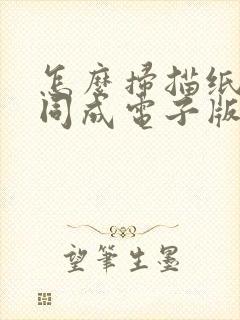 怎麼掃描紙
同成電子版
望筆生墨